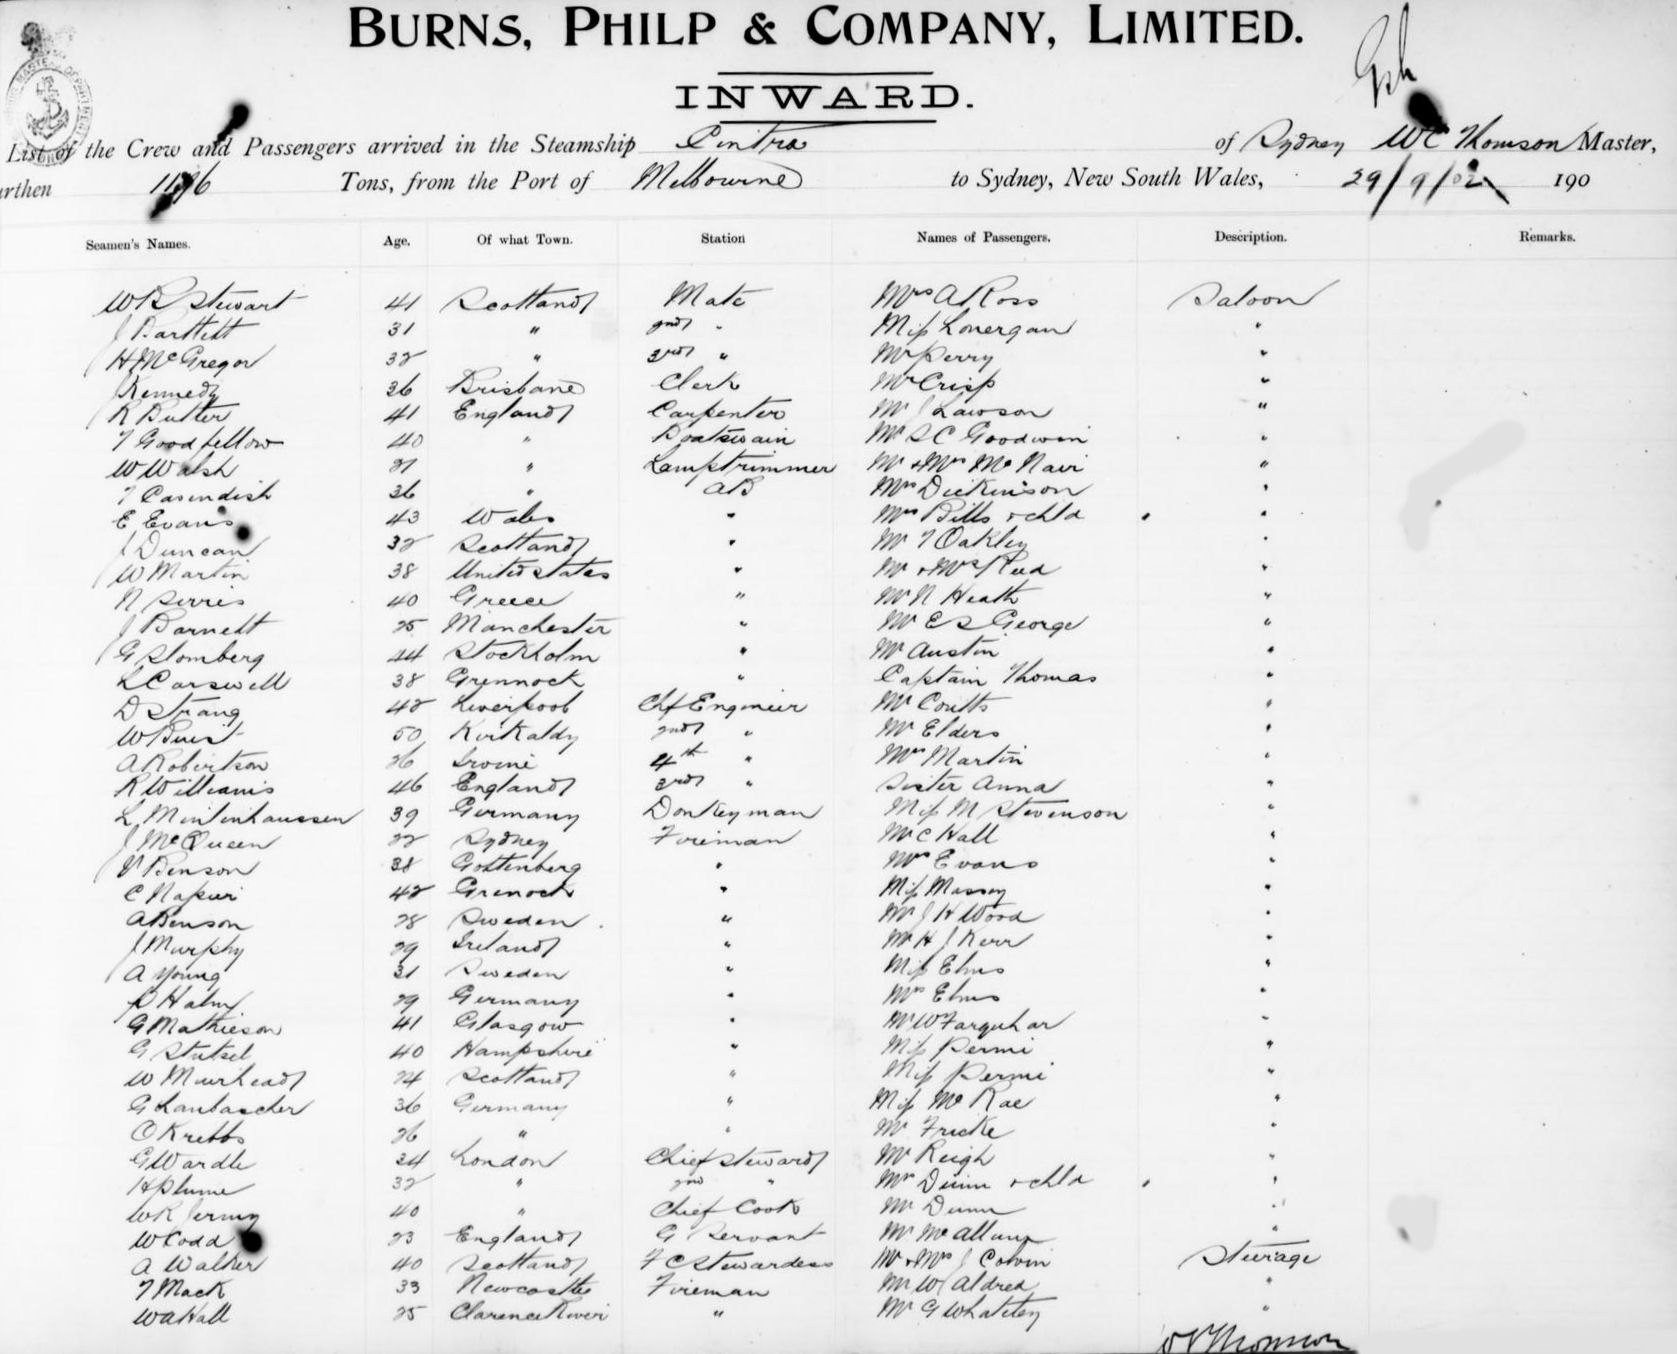 BURNS, PHILP & COMPANY, LIMITED.
INWARD.
List of the Crew and Passengers arrived in the Steamship Cintra of Sydney WC Thomson Master,
Tons, from the Port of Melbourne to Sydney, New South Wales, 29/9/02 190
Seamen's Names. Age. Of what Town. Station Names of Passengers. Description. Remarks.
W B Stewart 41 Scotland Mate Mrs A Ross Saloon
J Bartlett 31 " 2nd " Miss Lonergan "
H McGregor 32 " 3rd " Mr Perry "
J Kennedy 36 Brisbane Clerk Mr Crisp "
R Butter 41 England Carpenter Mr J Lawson "
T Goodfellow 40 " Boatswain Mr S C Goodwin "
W Walsh " Lamptrimmer Mr & Mrs McNair "
T Cavendish 36 " AB Mrs Dickinson "
E Evans 43 Wales " Mrs Bills & chld "
J Duncan 32 Scotland " Mr T Oakley "
W Martin 38 United States " Mr & Mrs Reid "
N Serris 40 Greece " Mr N Heath "
J Barnett 25 Manchester " Mr E S George "
G Stomberg 44 Stockholm " Mr Austin "
L Carswell 38 Grennock " Captain Thomas "
D Strang 42 Liverpool Chf Engineer Mr Coutts "
W Buist 50 Kirkaldy 2nd " Mr Elders "
A Robertson 26 Irvine 4th " Mrs Martin "
R Williams 46 England 3rd " Sister Anna "
L Mintinhaussen 39 Germany Donkeyman Miss M Stevenson "
J McQueen 22 Sydney Fireman Mr C Hall "
V Benson 38 Gottenberg " Mrs Evans "
C Napier 42 Grenock " Miss Massey "
A Benson 28 Sweden " Mr J H Wood "
J Murphy 29 Ireland " Mr H J Kerr "
A Young 31 Sweden " Miss Elms "
P Halm 29 Germany " Mrs Elms "
G Mathieson 41 Glasgow " Mr W Farquhar "
G Stutsel 40 Hampshire " Miss Permi "
W Muirhead 24 Scotland " Miss Permi "
G Lanbascher 36 Germany " Miss McRae "
O Krebbs 26 " " Mr Fricke "
G Wardle 34 London Chief Steward Mr Reigh "
H Plume 32 " 2nd " Mrs Dunn & chld "
W R Jermy 40 " Chief Cook Mr Dunn "
W Codd 23 England G Servant Mr McAllum "
A Walker 40 Scotland F C Stewardess Mr & Mrs J Corvin Steerage
T Mack 33 Newcastle Fireman Mr W Aldred "
W A Hall 25 Clarence River " Mr G Whatley "
W C Thomson